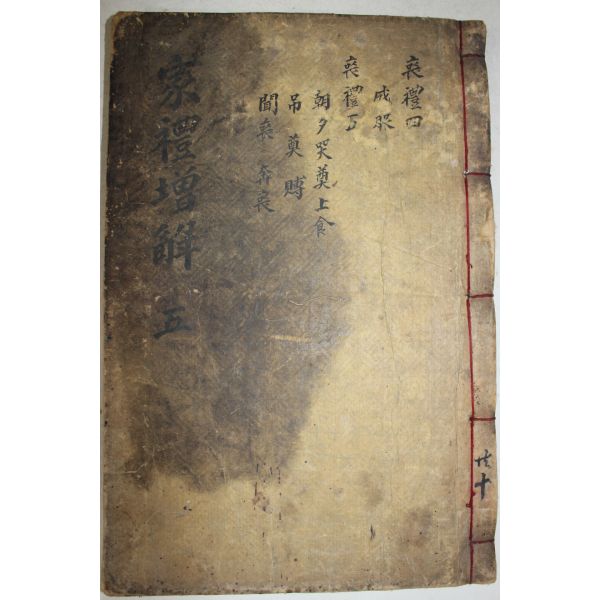 喪禮四
成服
喪禮五
朝夕哭奠上食
吊奠賻
聞喪 奔喪
家禮增解 五
共十